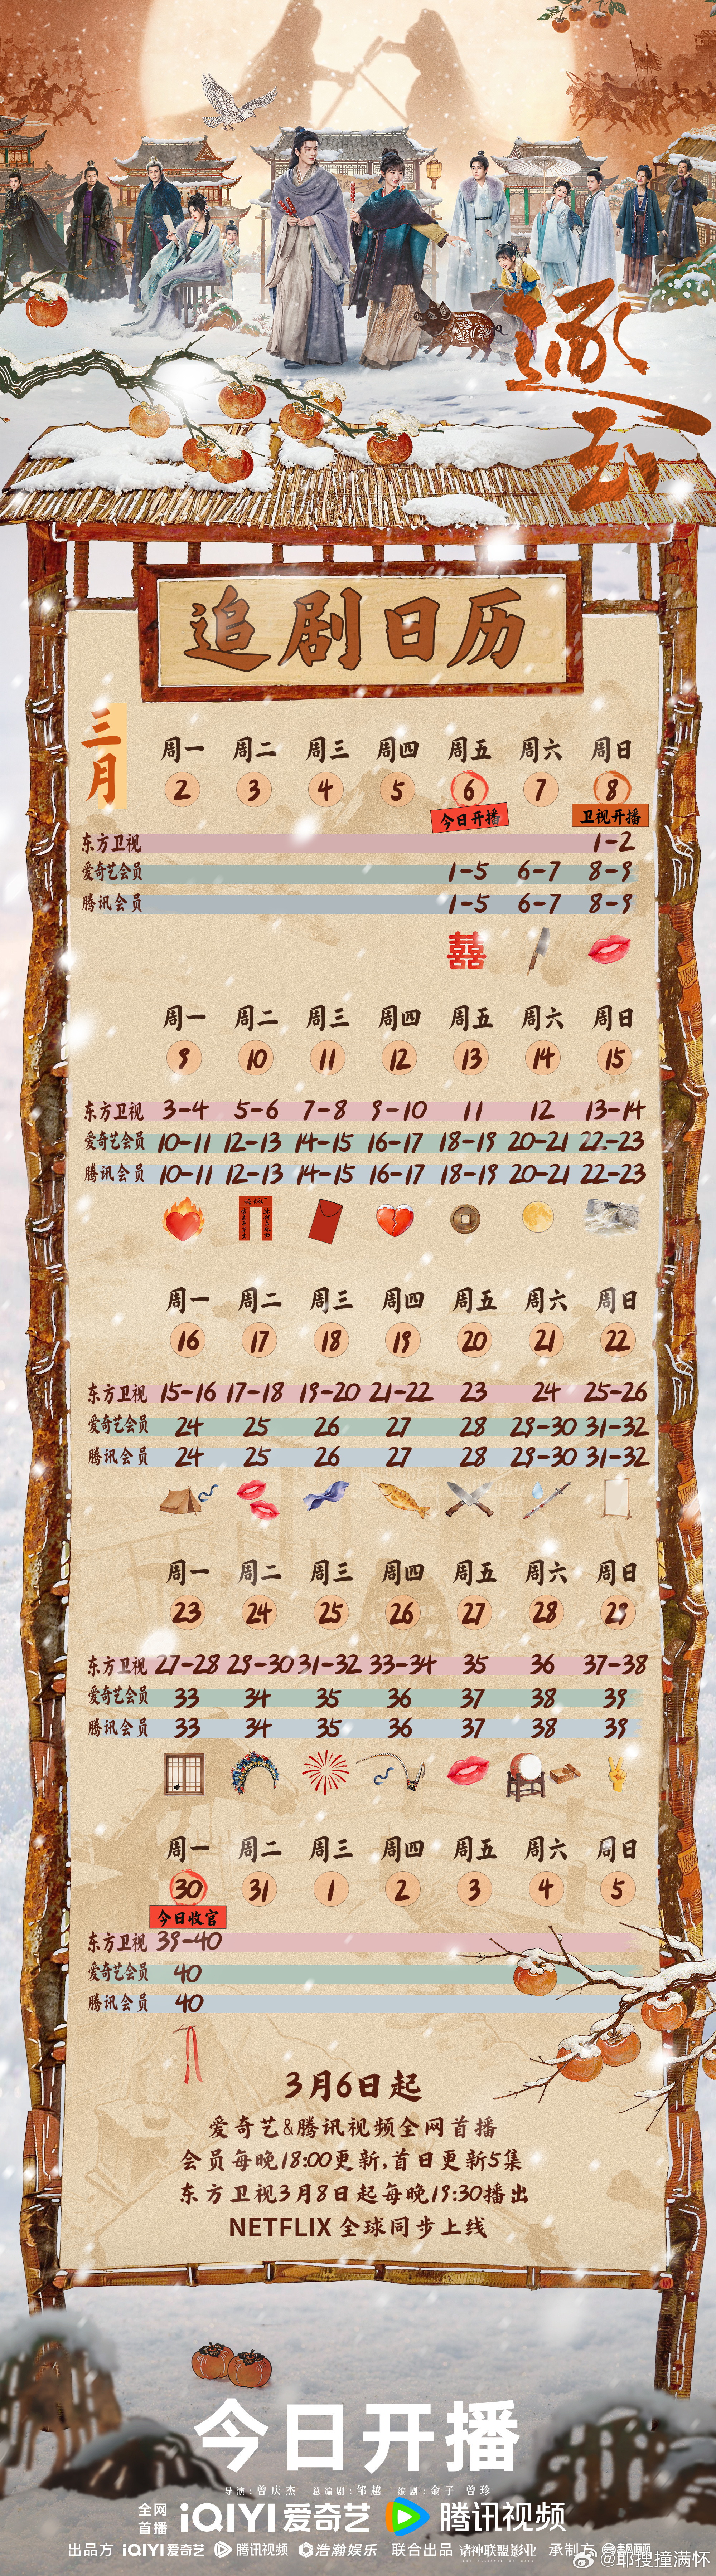 逐玉
追剧日历
三月
周一 周二 周三 周四 周五 周六 周日
2 3 4 5 6 7 8
今日开播 卫视开播
东方卫视 1-2
爱奇艺会员 1-5 6-7 8-9
腾讯会员 1-5 6-7 8-9
囍
周一 周二 周三 周四 周五 周六 周日
9 10 11 12 13 14 15
东方卫视 3-4 5-6 7-8 9-10 11 12 13-14
爱奇艺会员 10-11 12-13 14-15 16-17 18-19 20-21 22-23
腾讯会员 10-11 12-13 14-15 16-17 18-19 20-21 22-23
周一 周二 周三 周四 周五 周六 周日
16 17 18 19 20 21 22
东方卫视 15-16 17-18 19-20 21-22 23 24 25-26
爱奇艺会员 24 25 26 27 28 29-30 31-32
腾讯会员 24 25 26 27 28 29-30 31-32
周一 周二 周三 周四 周五 周六 周日
23 24 25 26 27 28 29
东方卫视 27-28 29-30 31-32 33-34 35 36 37-38
爱奇艺会员 33 34 35 36 37 38 39
腾讯会员 33 34 35 36 37 38 39
周一 周二 周三 周四 周五 周六 周日
30 31 1 2 3 4 5
今日收官
东方卫视 39-40
爱奇艺会员 40
腾讯会员 40
3月6日起
爱奇艺&腾讯视频全网首播
会员每晚18:00更新,首日更新5集
东方卫视3月8日起每晚19:30播出
NETFLIX 全球同步上线
今日开播
导演:曾庆杰 总编剧:邹越 编剧:金子 曾珍
全网首播 iQIYI 爱奇艺 腾讯视频
出品方 iQIYI 爱奇艺 腾讯视频 浩瀚娱乐 联合出品 诸神联盟影业 承制方
@耶搜撞满怀